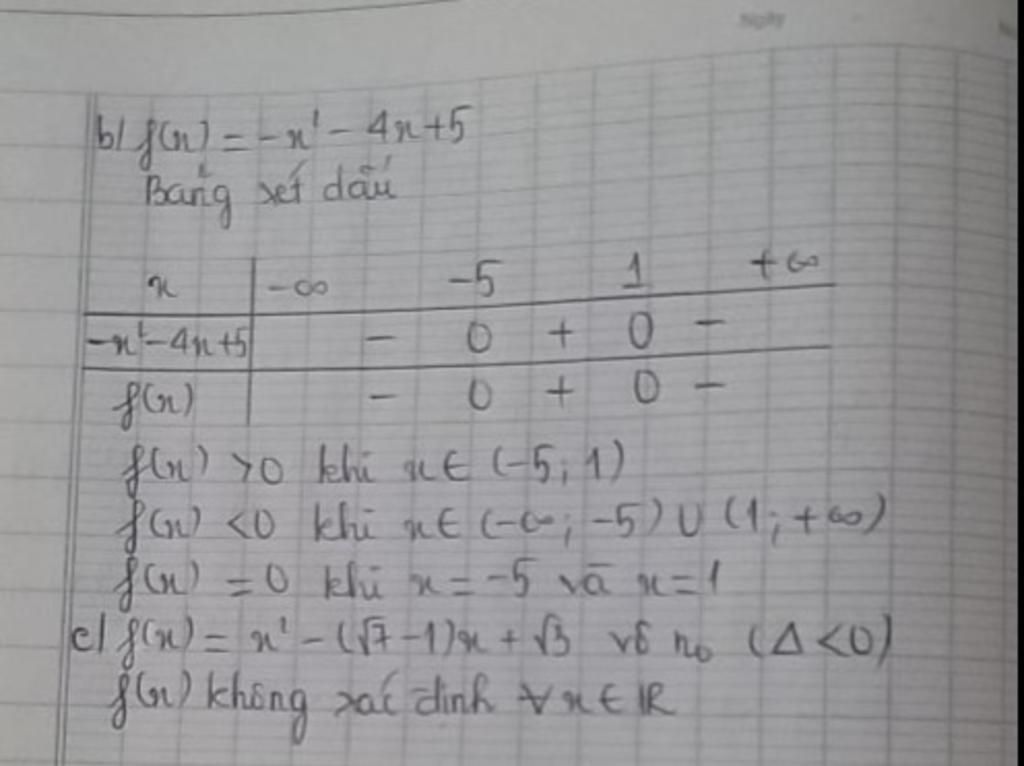 Ngày
b/ f(x) = -x² - 4x+5
Bảng xét dấu
x -∞ -5 1 +∞
-x²-4x+5 - 0 + 0 -
f(x) - 0 + 0 -
f(x) >0 khi x∈ (-5; 1)
f(x) <0 khi x∈ (-∞; -5) ∪ (1; +∞)
f(x) =0 khi x = -5 và x=1
c/ f(x) = x² - (√7 -1)x + √3 vô no (Δ <0)
f(x) không xác định ∀x∈ℝ